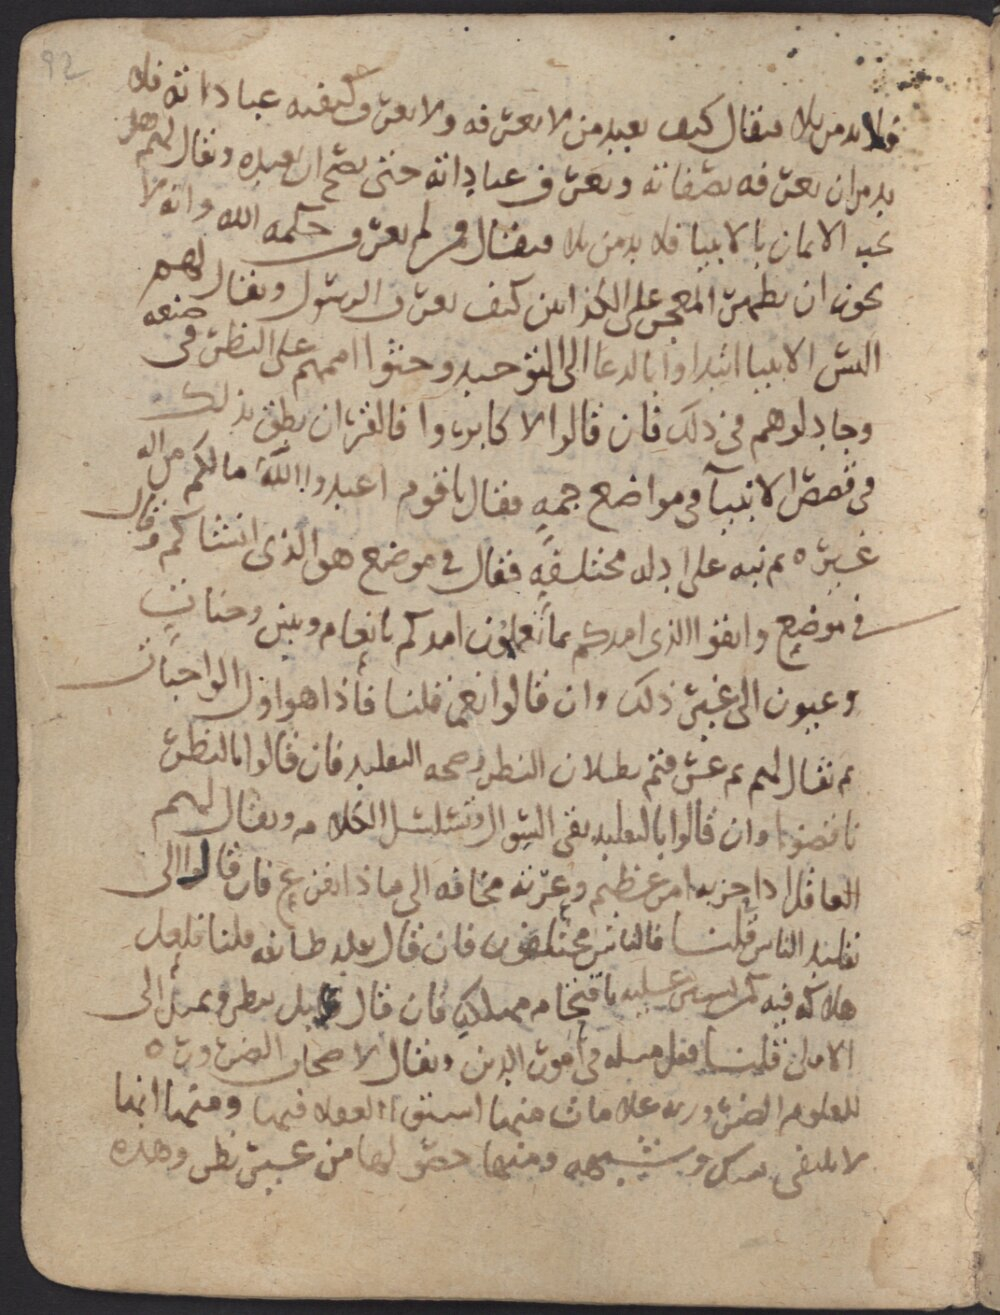 92
فلا بد من بلا فيقال كيف يعبد من لا يعرفه ولا يعرف كيفيه عباداته فلا
بد من ان يعرفه بصفاته ويعرف عباداته حتى يصح ان يعبده ويقال لهم هل
يجب الايمان بالانبيا فلا بد من بلا فيقال من لم يعرف حكمه الله وانه لا
يجوز ان يظهر المعجز على الكذابين كيف يعرف الرسول ويقال لهم
اليس الانبيا ابتداوا بالدعا الى التوحيد وحثوا اممهم على النظر في صنعه
وجادلوهم في ذلك فان قالوا لا كابروا فالقران نطق بذلك
في قصص الانبيآ في مواضع جمه فقال يا قوم اعبدوا الله ما لكم من اله
غيره ثم نبه على ادله مختلفه فقال في موضع هو الذي انشاكم وقال
في موضع واتقوا الذي امدكم بما تعلمون امدكم بانعام وبنين وجنات
وعيون الى غير ذلك وان قالوا نعم قلنا فاذا هو اول الواجبات
ثم يقال لهم بم عرفتم بطلان النظر وصحه التقليد فان قالوا بالنظر
ناقضوا وان قالوا بالتقليد بقي السوال وتسلسل الكلام ويقال لهم
العاقل اذا حزبه امر عظيم وعرته مخافه الى ماذا يفزع فان قالوا الى
تقليد الناس قلنا فالناس مختلفون فان قال يقلد طايفه قلنا فلعل
هلاكه فيه كمن اشير عليه باقتحام مهلك فان قال بل ينظر ويميل الى
الاولى قلنا فقل مثله في امور الدين ويقال لاصحاب الضروره
للعلوم الضروريه علامات منها استوا العقلا فيها ومنها انها
لا تنتفي بشك وشبهه ومنها حصولها من غير نظر وهذه